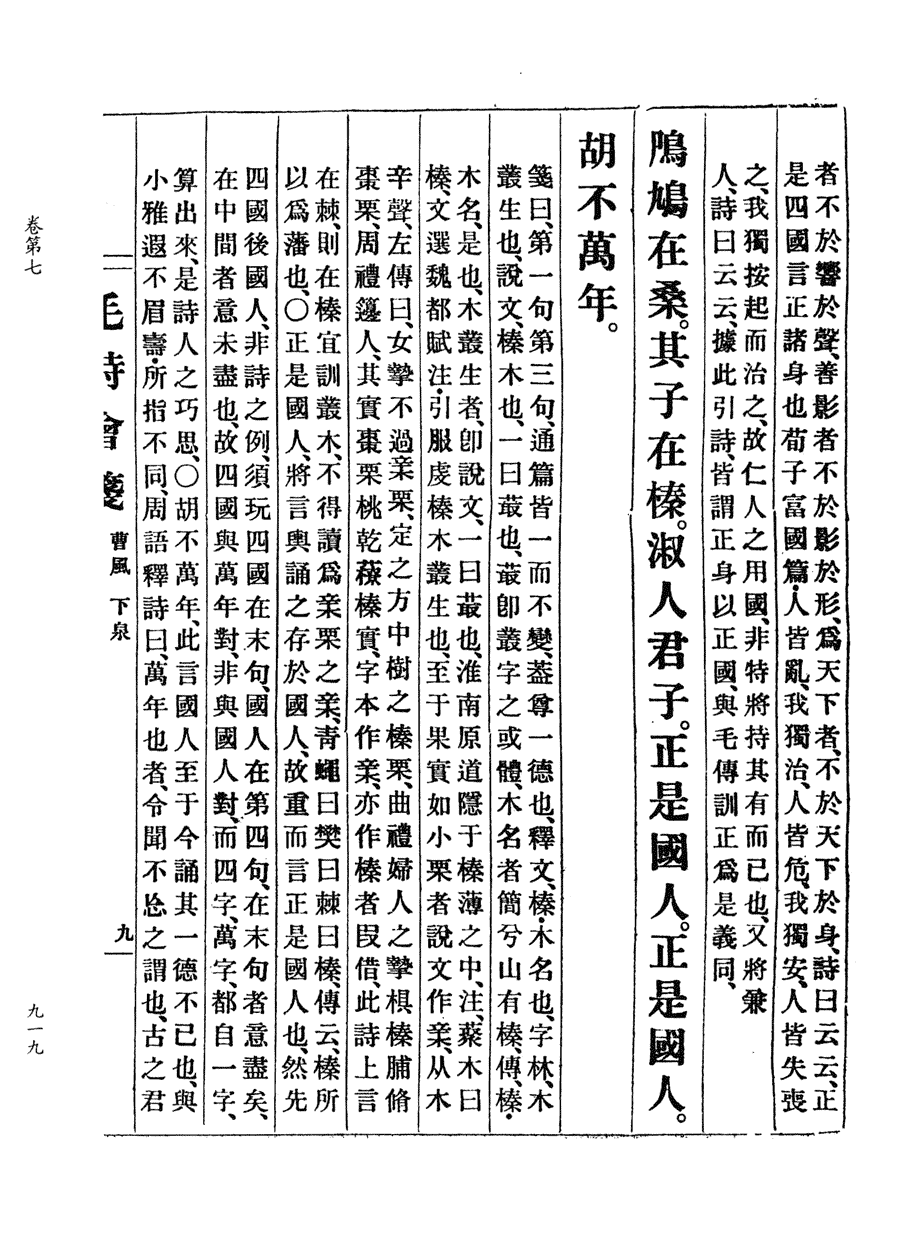 者不於響於聲、善影者不於影於形、爲天下者、不於天下於身、詩曰云云、正
是四國言正諸身也荀子富國篇・人皆亂、我獨治、人皆危、我獨安、人皆失喪
之、我獨按起而治之、故仁人之用國、非特將持其有而已也、又將兼
人、詩曰云云、據此引詩、皆謂正身以正國、與毛傳訓正爲是義同、
鳲鳩在桑。其子在榛。淑人君子。正是國人。正是國人。
胡不萬年。
箋曰、第一句第三句、通篇皆一而不變、蓋尊一德也、釋文、榛・木名也、字林、木
叢生也、說文、榛木也、一曰蕞也、蕞卽叢字之或體、木名者簡兮山有榛、傳、榛・
木名、是也、木叢生者、卽說文、一曰蕞也、淮南原道隱于榛薄之中、注、藂木曰
榛、文選魏都賦注・引服虔榛木叢生也、至于果實如小栗者說文作亲、从木
辛聲、左傳曰、女摯不過亲栗、定之方中樹之榛栗、曲禮婦人之摯椇榛脯脩
棗栗、周禮籩人、其實棗栗桃乾䕩榛實、字本作亲、亦作榛者叚借、此詩上言
在棘、則在榛宜訓叢木、不得讀爲亲栗之亲、靑蠅曰樊曰棘曰榛、傳云、榛所
以爲藩也、〇正是國人、將言輿誦之存於國人、故重而言正是國人也、然先
四國後國人、非詩之例、須玩四國在末句、國人在第四句、在末句者意盡矣、
在中間者意未盡也、故四國與萬年對、非與國人對、而四字、萬字、都自一字、
算出來、是詩人之巧思、〇胡不萬年、此言國人至于今誦其一德不已也、與
小雅遐不眉壽・所指不同、周語釋詩曰、萬年也者、令聞不忘之謂也、古之君
毛詩會箋 曹風 下泉
九
卷第七
九一九